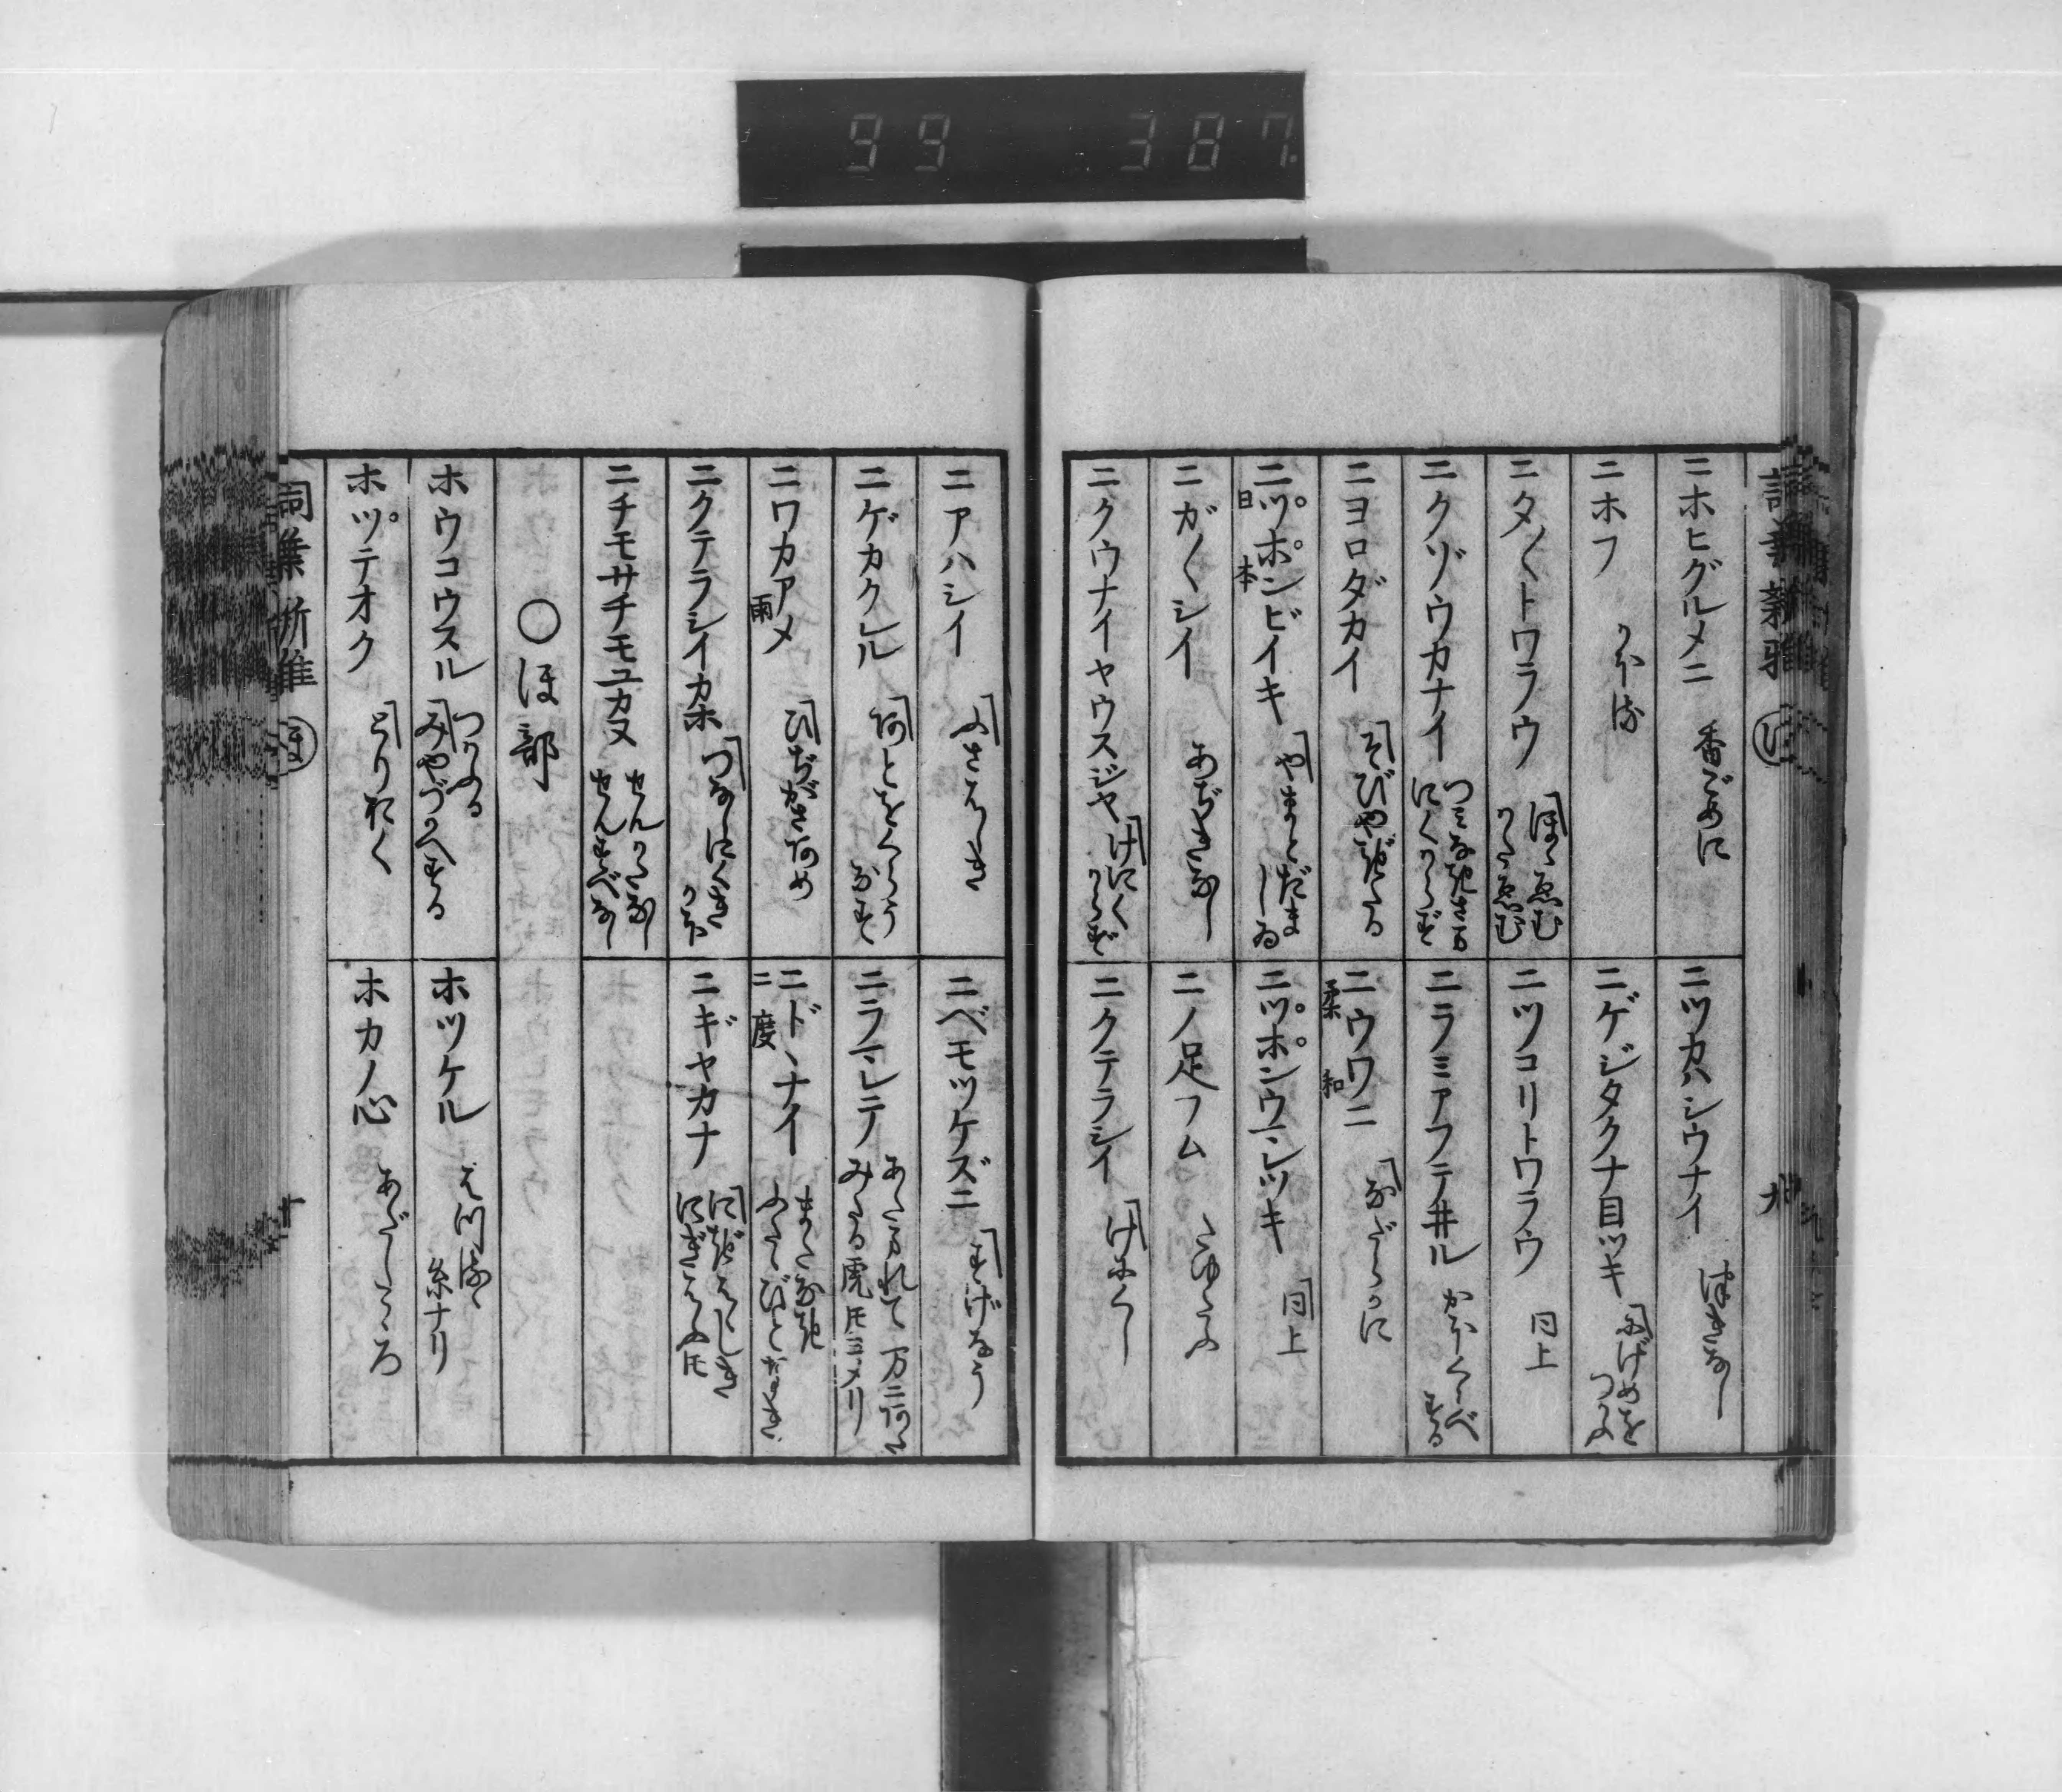 99 387.
詞葉新雅
ニホヒグルメニ 香ごめに
ニツカハシウナイ はしたなし
ニホフ かほる
ニゲジタクナ目ツキ にげめをつかふ
ニタ〱トワラウ ほゝゑむ かたゑむ
ニツコリトワラウ 同上
ニクゾウカナイ つみなきさま にくからず
ニラミアフテ井ル かほくらべする
ニヨロダカイ そびやぎたる
ニウワニ 柔和 なだらかに
ニツポンビイキ 日本 やまとだましゐ
ニツポンウマレツキ 同上
ニガ〱シイ あぢきなし
ニノ足フム たゆたふ
ニクウナイヤウスジヤ けにくからず
ニクテラシイ けにくし
ニアハシイ ふさはしき
ニベモツケズニ すげなう
ニゲカクルル あとをくらうなす
ニワカアメ 雨 ひぢがさあめ
ニドヽナイ 二度 またなき ふたゝびとなき
ニクテラシイカホ つなしにくきかほ
ニギヤカナ にぎはゝしき にぎはふ
ニチモサチモユカヌ せんかたなし せんすべなし
〇ほ部
ホウコウスル つかふる みやづかへする
ホツケル
ホツテオク とりおく
ホカノ心 あだしこゝろ
詞葉新雅 ほ